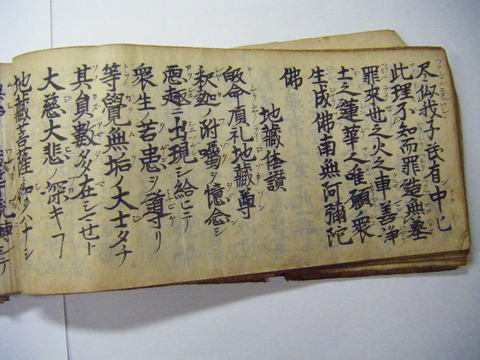 似我子民有中ニ
此理不知而罪造無墓
罪來世之火之車善淨
土之蓮華人唯願衆
生成佛南無阿彌陀
佛
地藏体讃
皈命頂礼地藏尊
釈迦ノ附囑ヲ憶念シ
悪趣ニ出現シ給ヒテ
衆生ノ苦患ヲ導リ
等覺無垢ノ大士タチ
其員數多在シマセト
大慈大悲ノ深キヿ
地藏菩薩ニシクハナシ